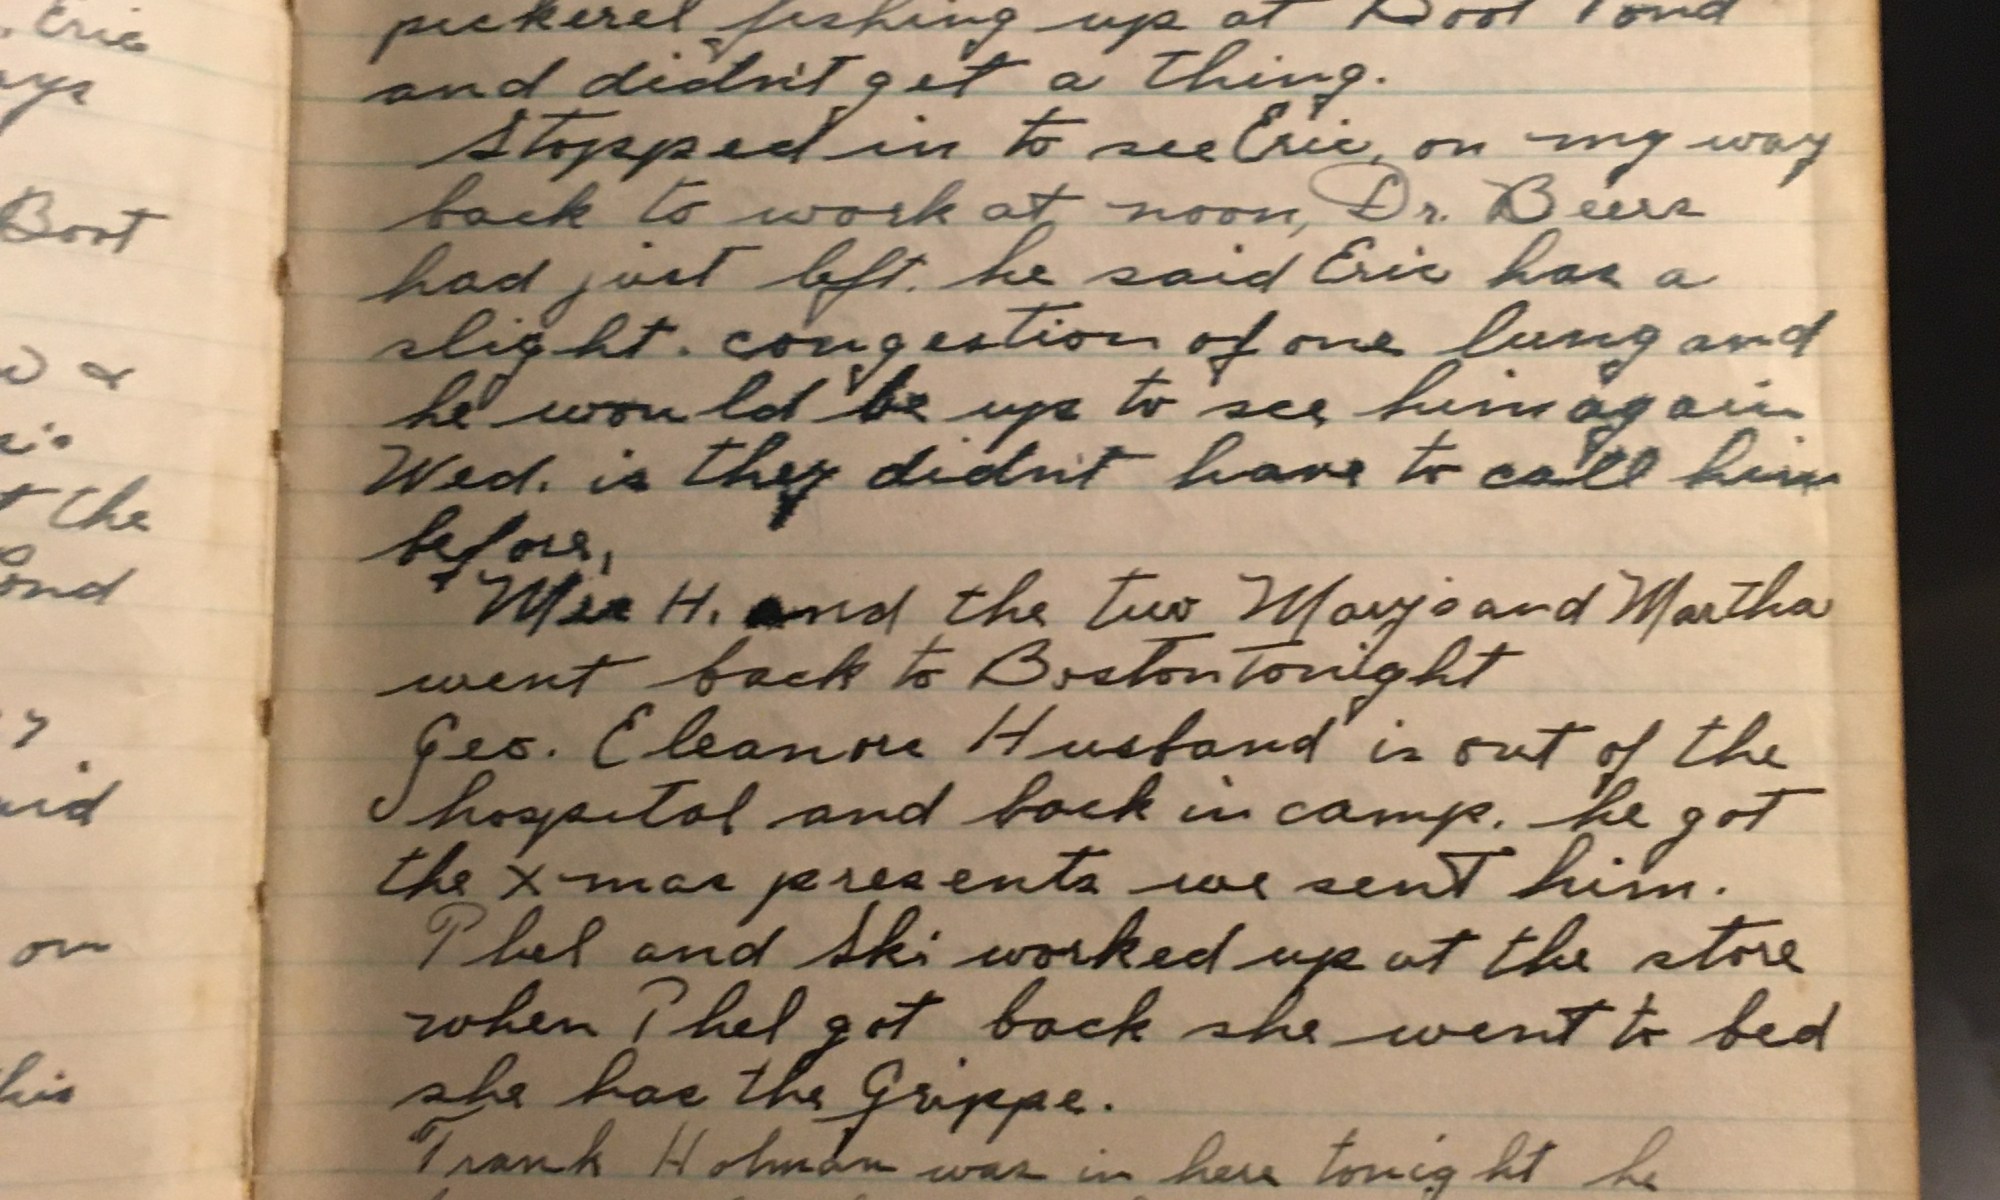 Eric
ays
Boot
w &
t the
Pond
aid
on
this
pickerel fishing up at Boot Pond
and didn't get a thing.
Stopped in to see Eric, on my way
back to work at noon, Dr. Beers
had just left. he said Eric has a
slight. congestion of one lung and
he would be up to see him again
Wed. is they didn't have to call him
before,
H. and the two Marys and Martha
went back to Boston Tonight
Geo. Eleanore Husband is out of the
hospital and back in camp. he got
the x-mas presents we sent him.
Phel and Ski worked up at the store
when Phel got back she went to bed
she has the Grippe.
Frank Holman was in here tonight he